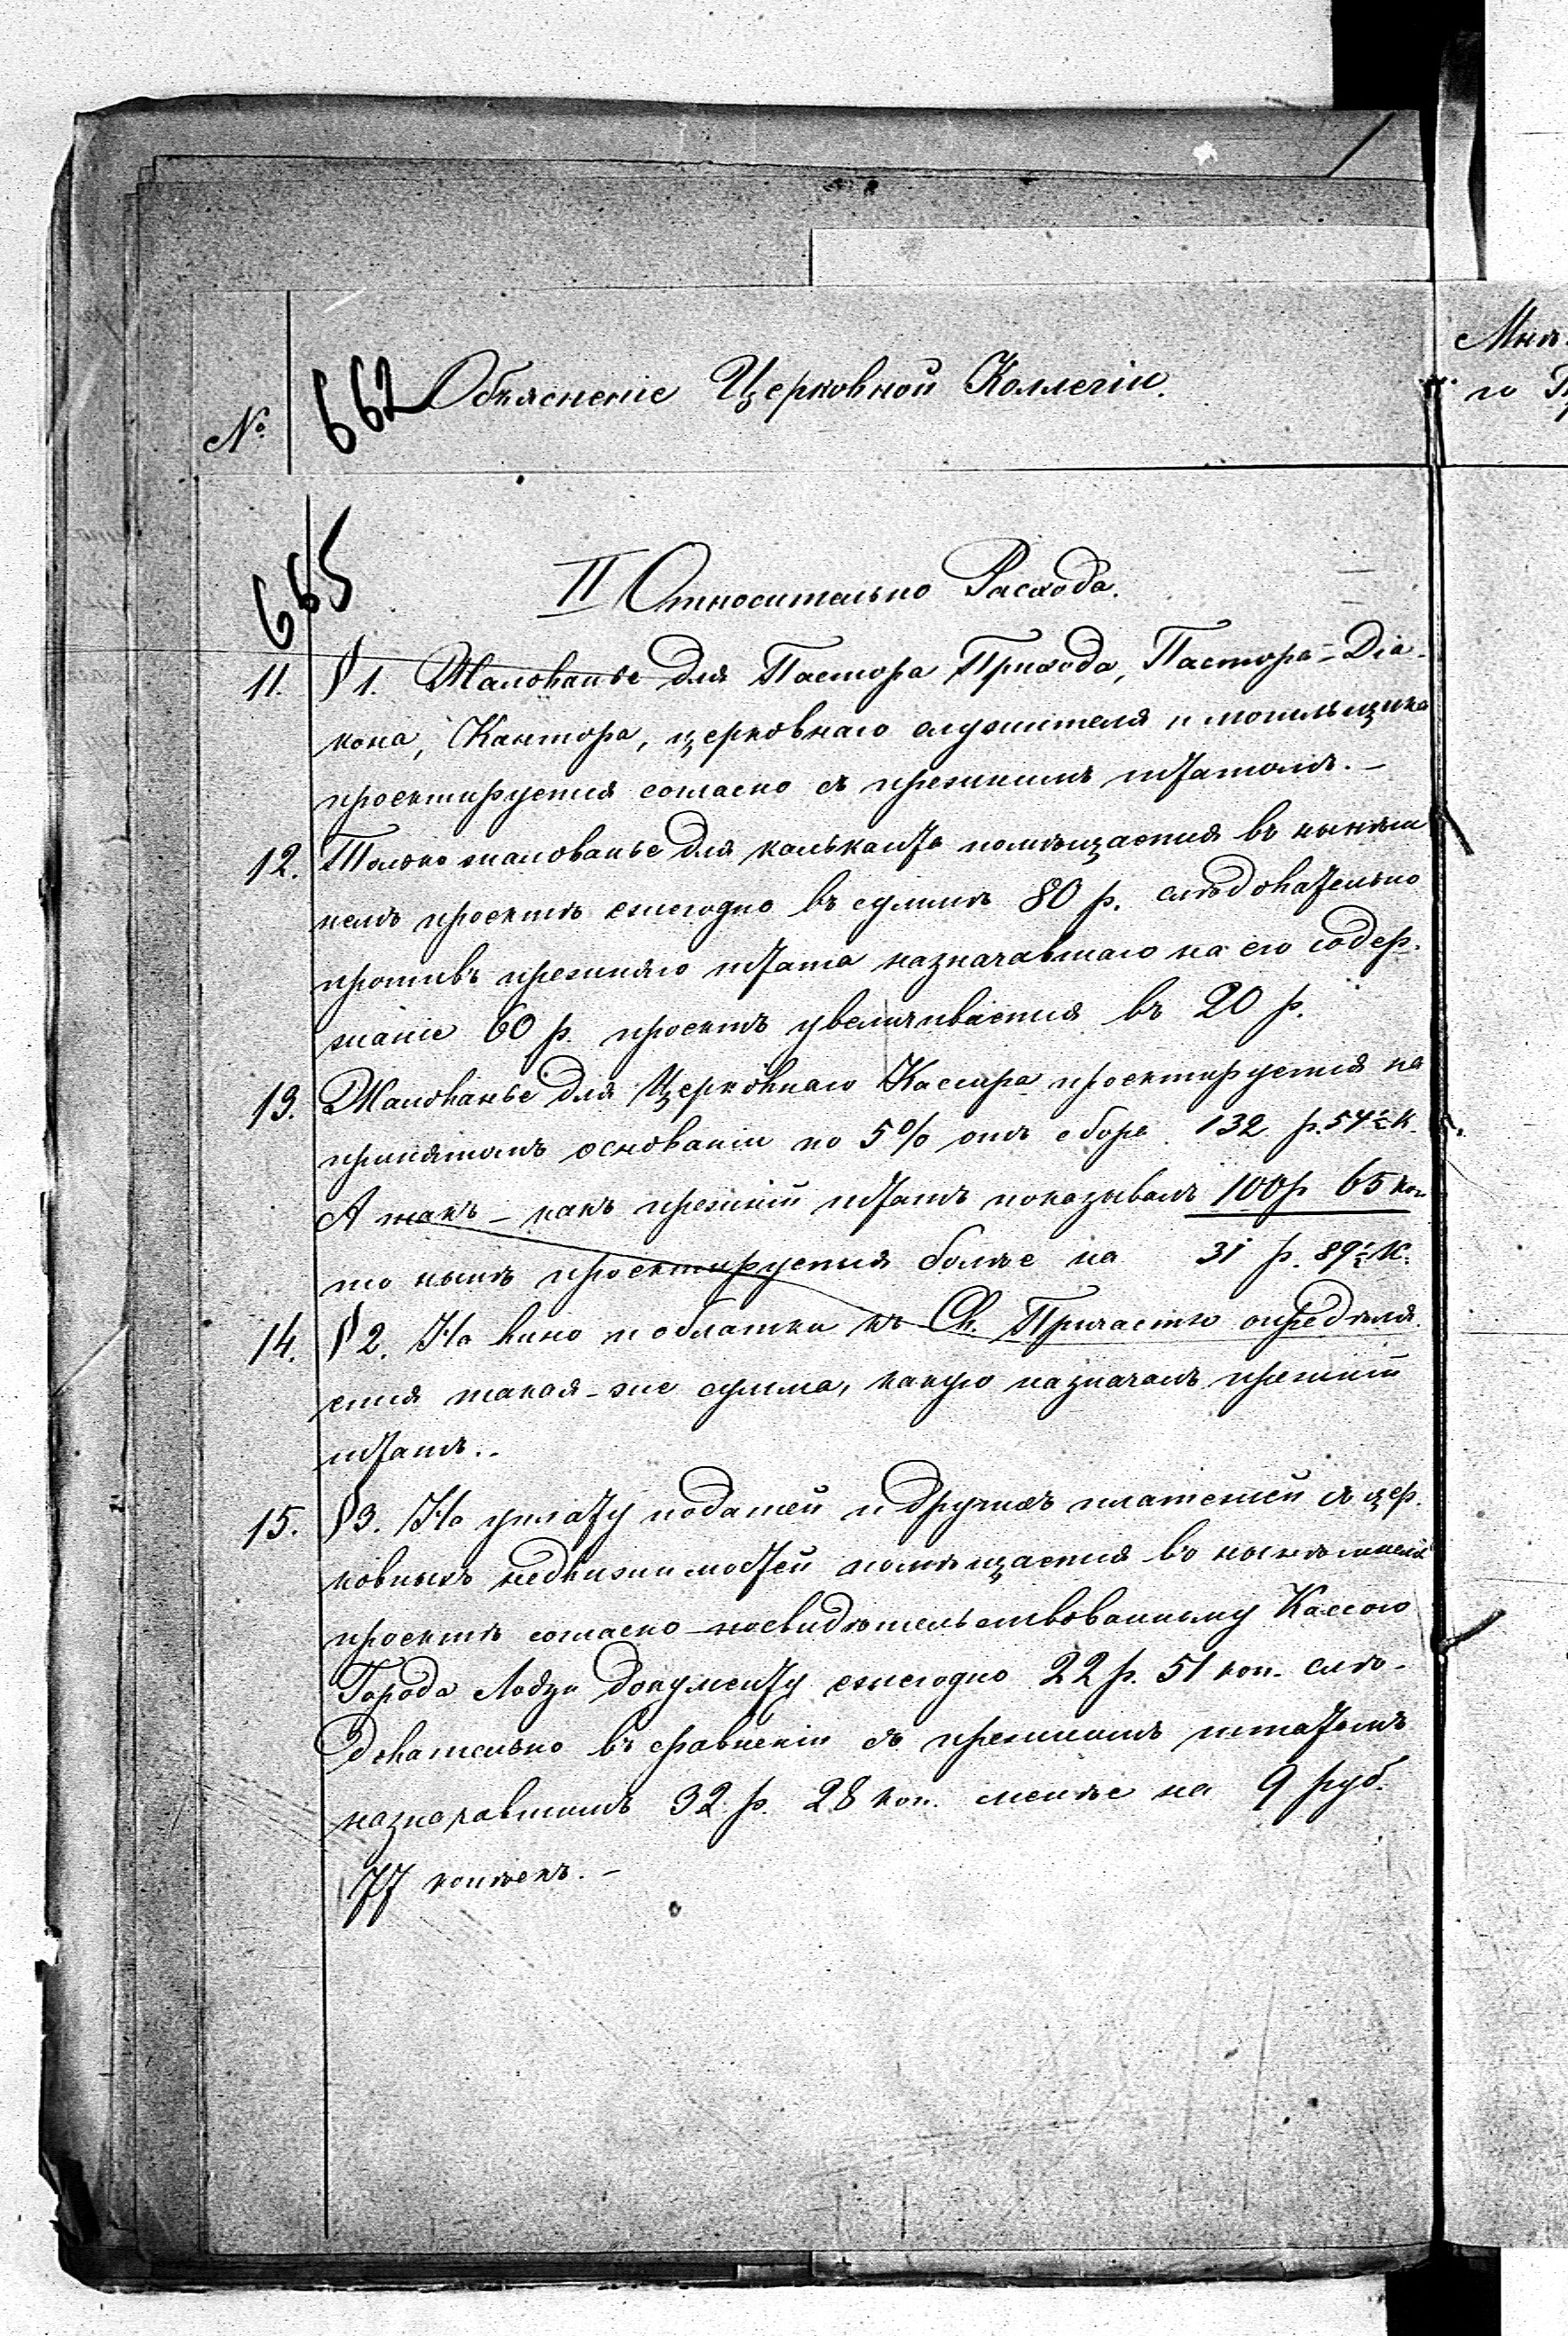 Мнѣ
го Гу
№
662
Объясненіе Церковной Коллегіи.
665
II Относительно Расхода.
11. § 1. Жалованье для Пастора Прихода, Пастора-Діа-
кона, Кантора, церковнаго служителя и могильщика
проектируется согласно съ прежнимъ штатомъ.-
12. Только жалованье для кальканта помѣщается въ нынѣш
немъ проектѣ ежегодно въ суммѣ 80 р. слѣдовательно
противъ прежняго штата назначавшаго на его содер-
жаніе 60 р. проектъ увеличивается въ 20 р.
13. Жалованье для Церковнаго Кассира проектируется на
принятомъ основаніи по 5% отъ сбора 132 р. 54½ к.
А такъ-какъ прежній штатъ показывалъ 100 р 65 коп
то нынѣ проектируется болѣе на 31 р. 89½ к.
14. § 2. На вино и облатки къ Св. Причастію опредѣля-
ется такая-же сумма, какую назначалъ прежній
штатъ..
15. § 3. На уплату податей и другихъ платежей съ цер-
ковныхъ недвижимостей помѣщается въ нынѣшнемъ
проектѣ согласно посвидѣтельствованному Кассою
Города Лодзи документу ежегодно 22 р. 51 коп. слѣ-
довательно въ сравненіи съ прежнимъ штатомъ
назначавшимъ 32 р. 28 коп. менѣе на 9 руб.
77 копѣекъ.-